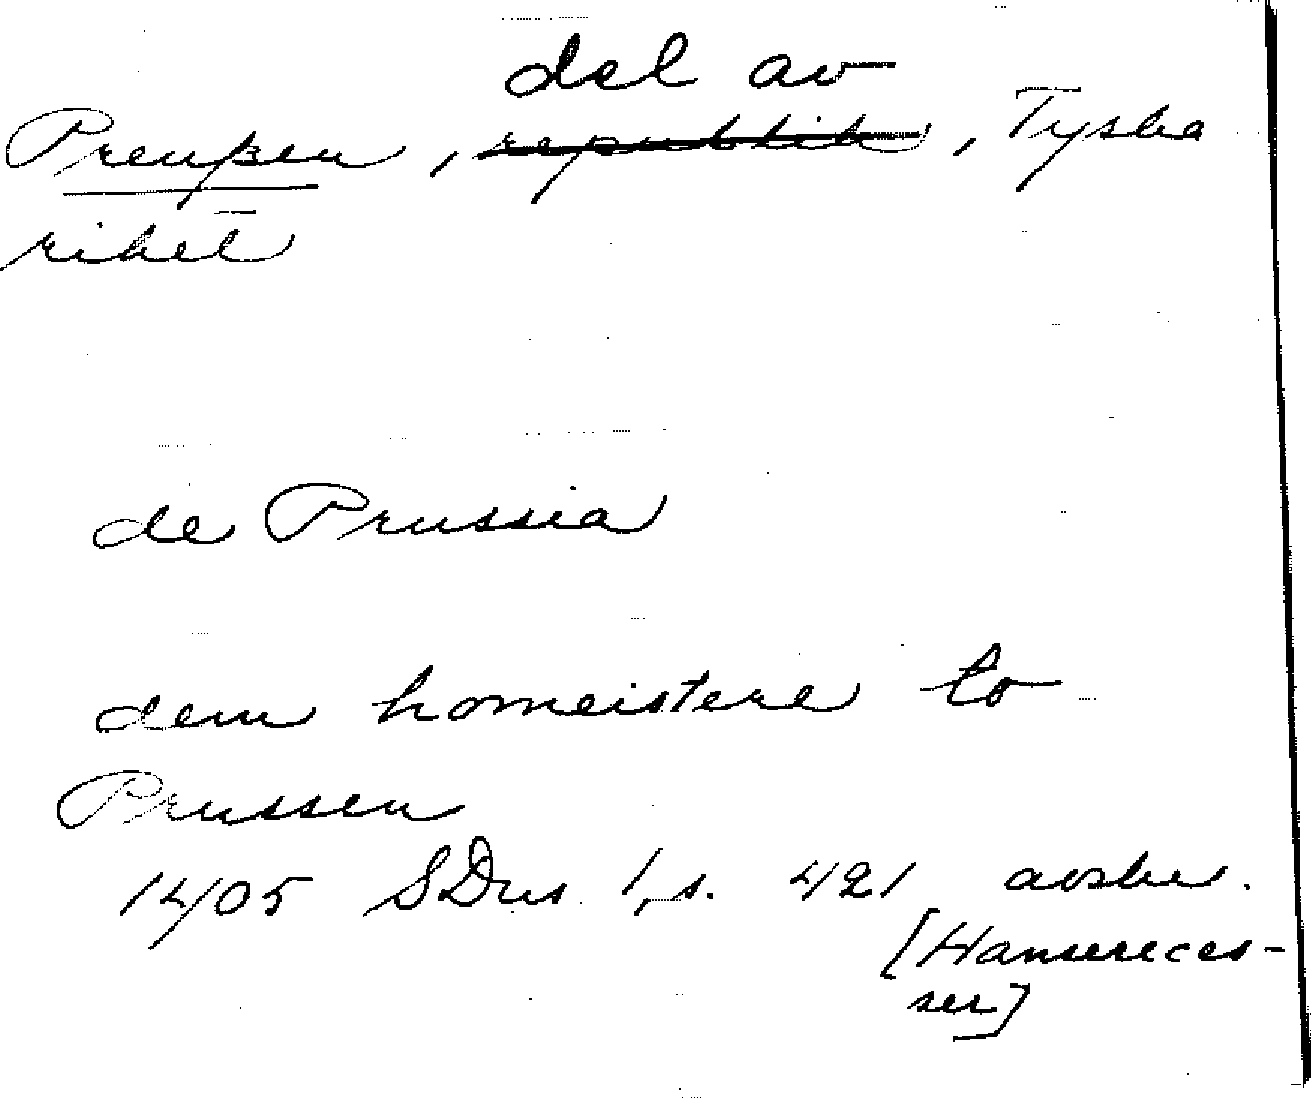 del av
Preußen, republik, Tyska
riket
de Prussia
dem homeistere to
Prussen
1405 SDns 1, s. 421 avskr.
[Hansereces-
ser]